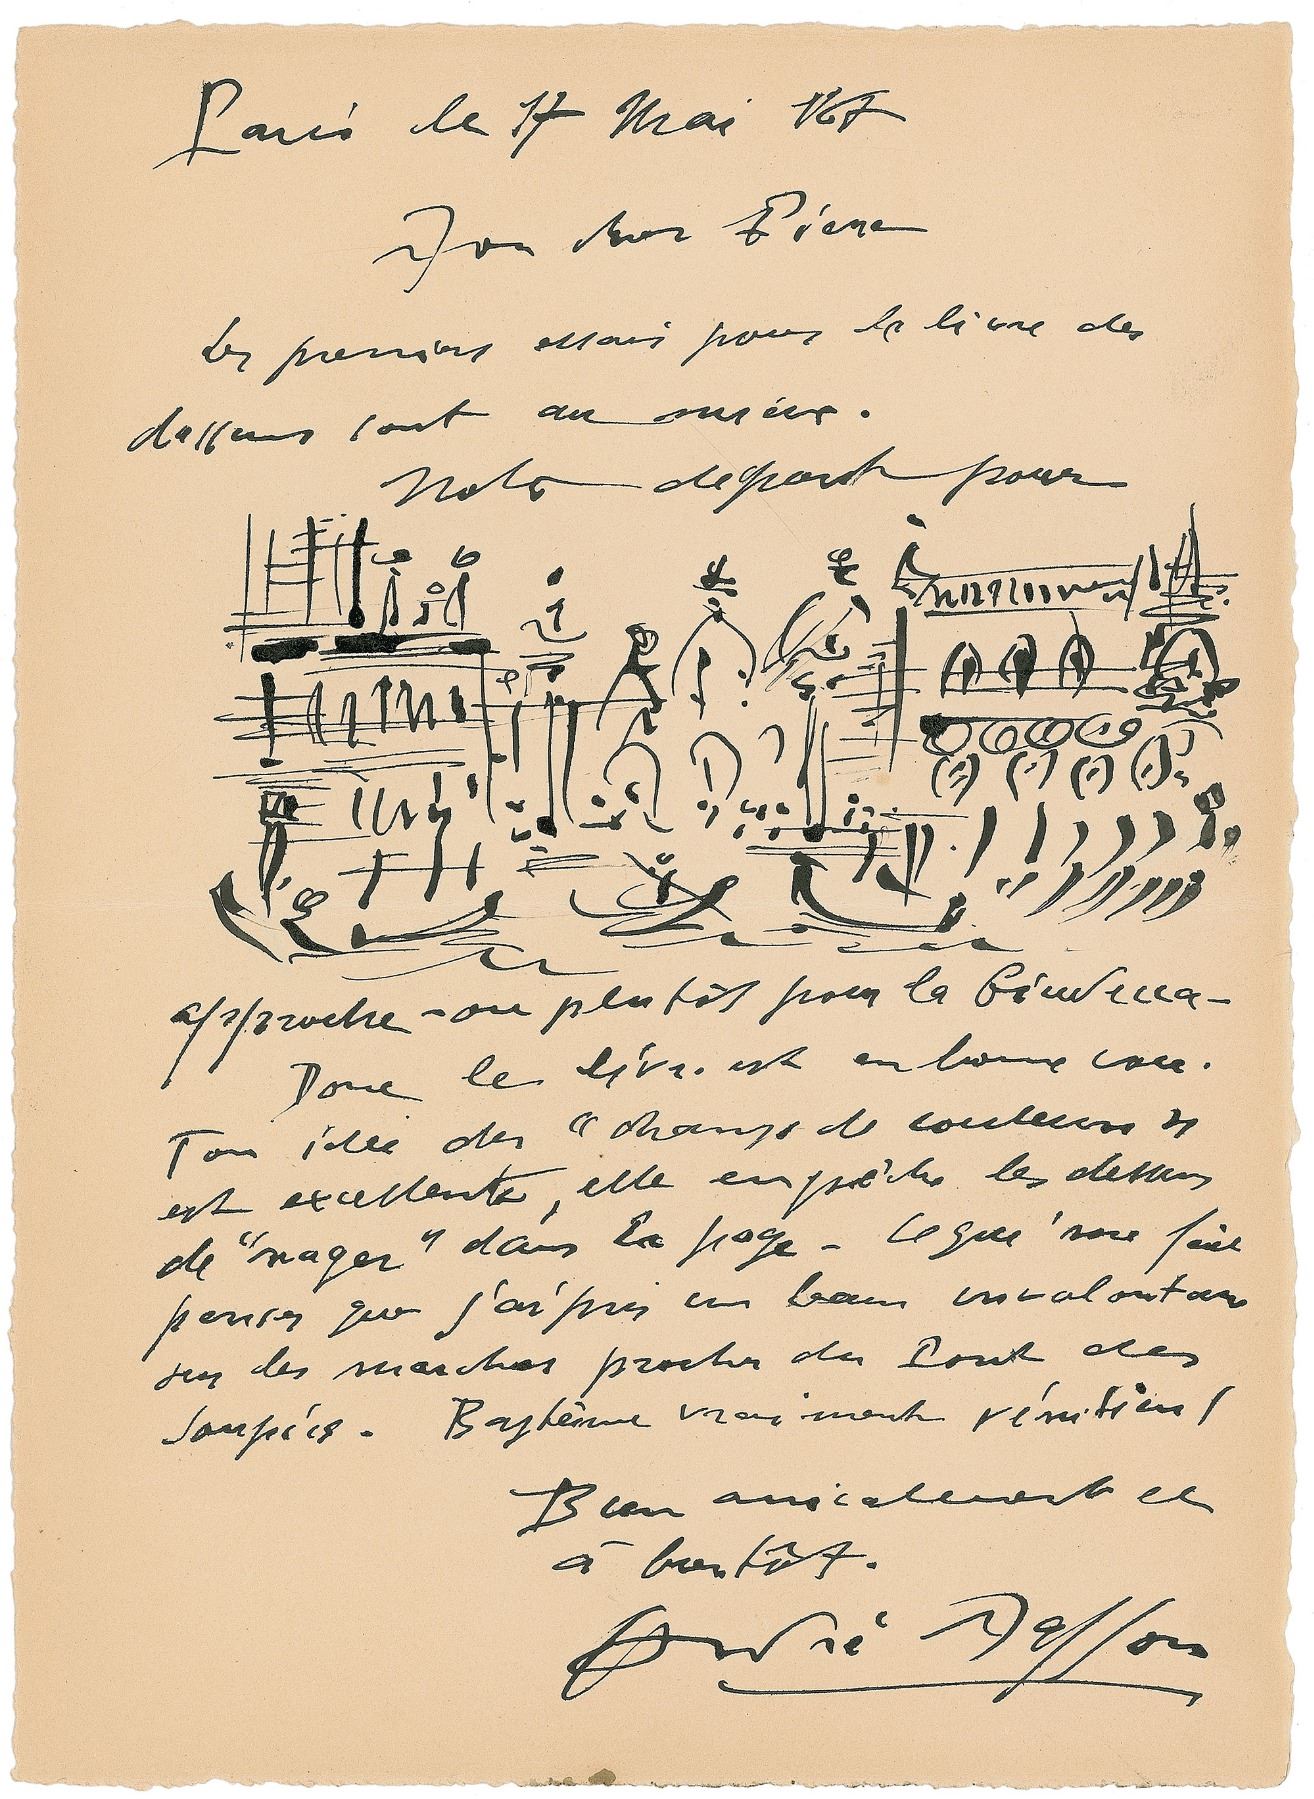 Paris le 17 Mai 167
Mon cher Pierre
Les premiers essais pour le livre des
dessins sont au mieux.
Notre départ pour
approche - ou plutôt pour la Giudecca -
Donc le livre est en bonne voie.
Ton idée des "champs de couleurs"
est excellente, elle empêche les dessins
de "nager" dans la page - Ce qui me fait
penser que j'ai pris un bain involontaire
sur les marches proches du Pont des
Soupirs. Baptême vraiment vénitien!
Bien amicalement et
à bientôt.
André Masson